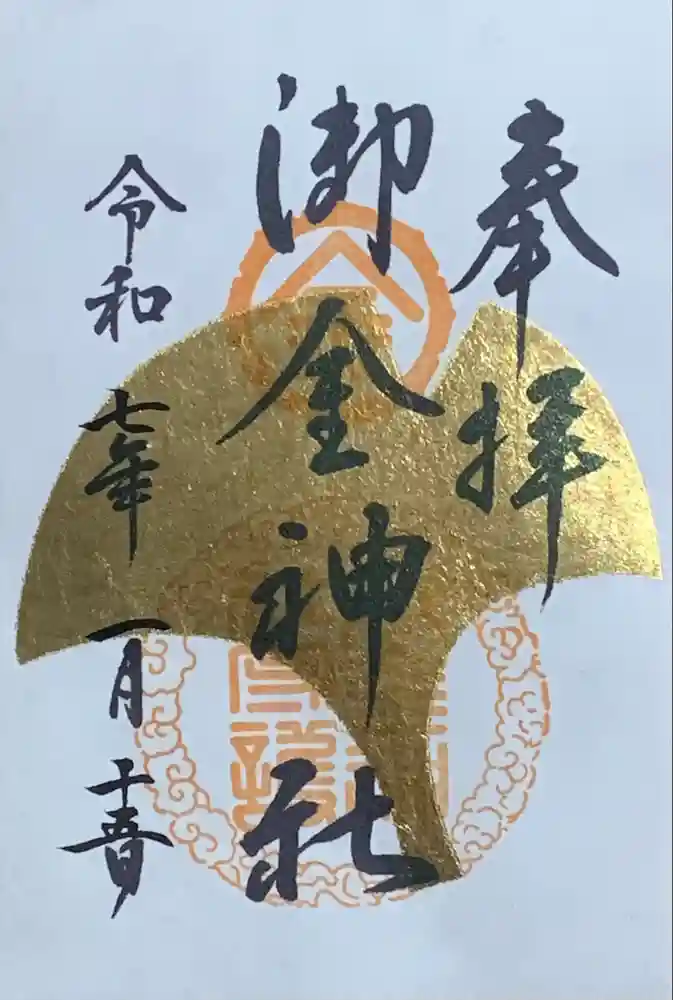 奉拝
御金神社
令和七年一月十五日